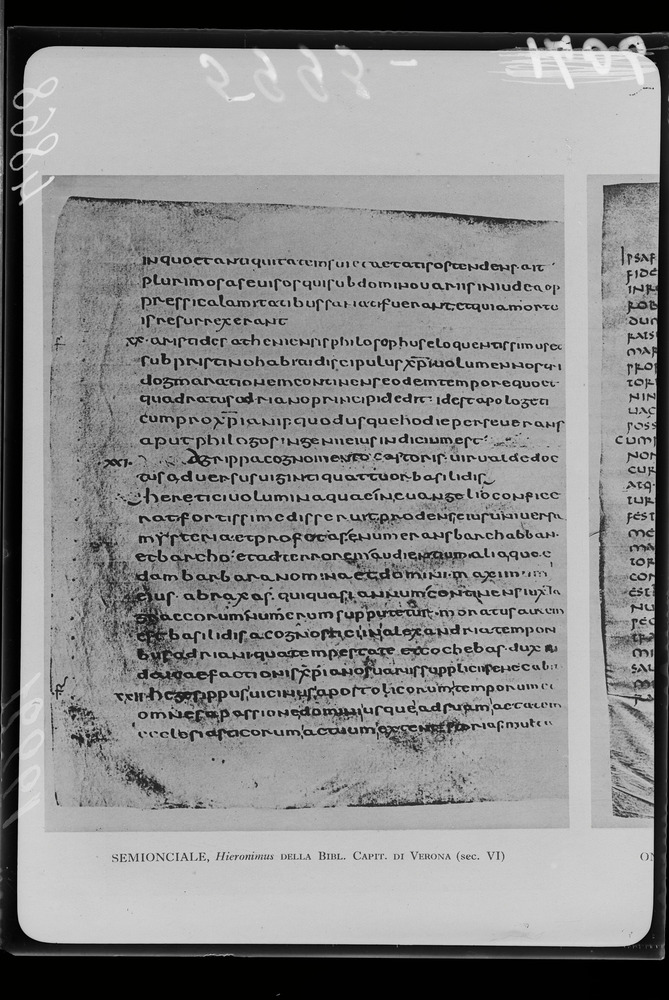 5665-
7071
8984
in quo et antiquitatem suae aetatis ostendens ait
plurimos a se uisos qui sub domino uariis in iudea op
pressi calamitatibus sanati fuerant et quia mortu
is resurrexerant
xx· aristides atheniensis philosophus eloquentissimus et
sub pristino habitu discipulus xp̄i uolumen nostri
dogmatis rationem continens eodem tempore quo et
quadratus adriano principi dedit· id est apologeti
cum pro xp̄ianis quod usque hodie perseuerans
aput philogos ingenii eius indicium est
xxi· Agrippa cognomento castoris· uir ualde doc
tus aduersus uiginti quattuor· basilidis
heretici uolumina quae in euangelio confice
rat fortissime disseruit prodens eius uniuersa
mysteria et profetas enumerans barchabban·
et barcho· et ad terrorem audientium alia quoque
dam barbara nomina et domini· maximum
eius· abraxas· qui quasi annum continens iuxta
graecorum numerum supputetur· moratus autem
est basilidis a cognosticun alexandria tempori
bus adriani qua tempestate et cochebas dux
factionis xp̄ianos uariis suppliciis enecabit
xxii· hegesippus uicinus apostolicorum temporum et
omnes a passione domini usque ad suam aetatem
ecclesiasticorum actuum
SEMIONCIALE, Hieronimus DELLA BIBL. CAPIT. DI VERONA (sec. VI)
IPSAF
FIDE
NIN
CUMI
NON
CUR
ATQ·
TUR
FEST
ME
MA
TOR
CON
EST
NU
TRA
MI
SAL